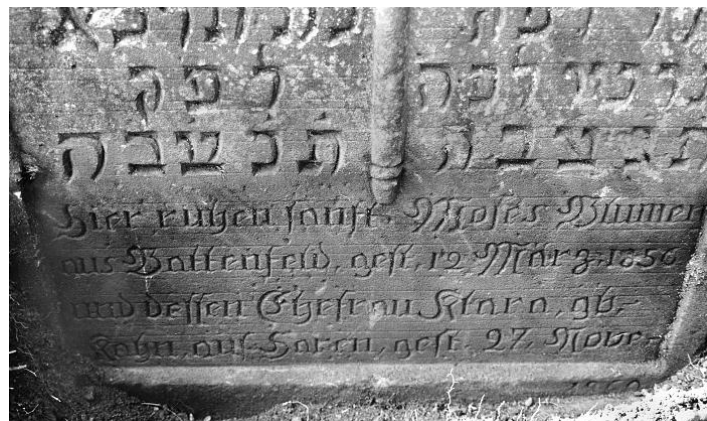 תנצבה
לפק
תנצבה
Hier ruhen sanft, Moses Blumen
aus Battenfeld, gest. 12 März 1856
und dessen Ehefrau Klara, gb.-
Kohn, aus Haren, gest. 27. Nove-